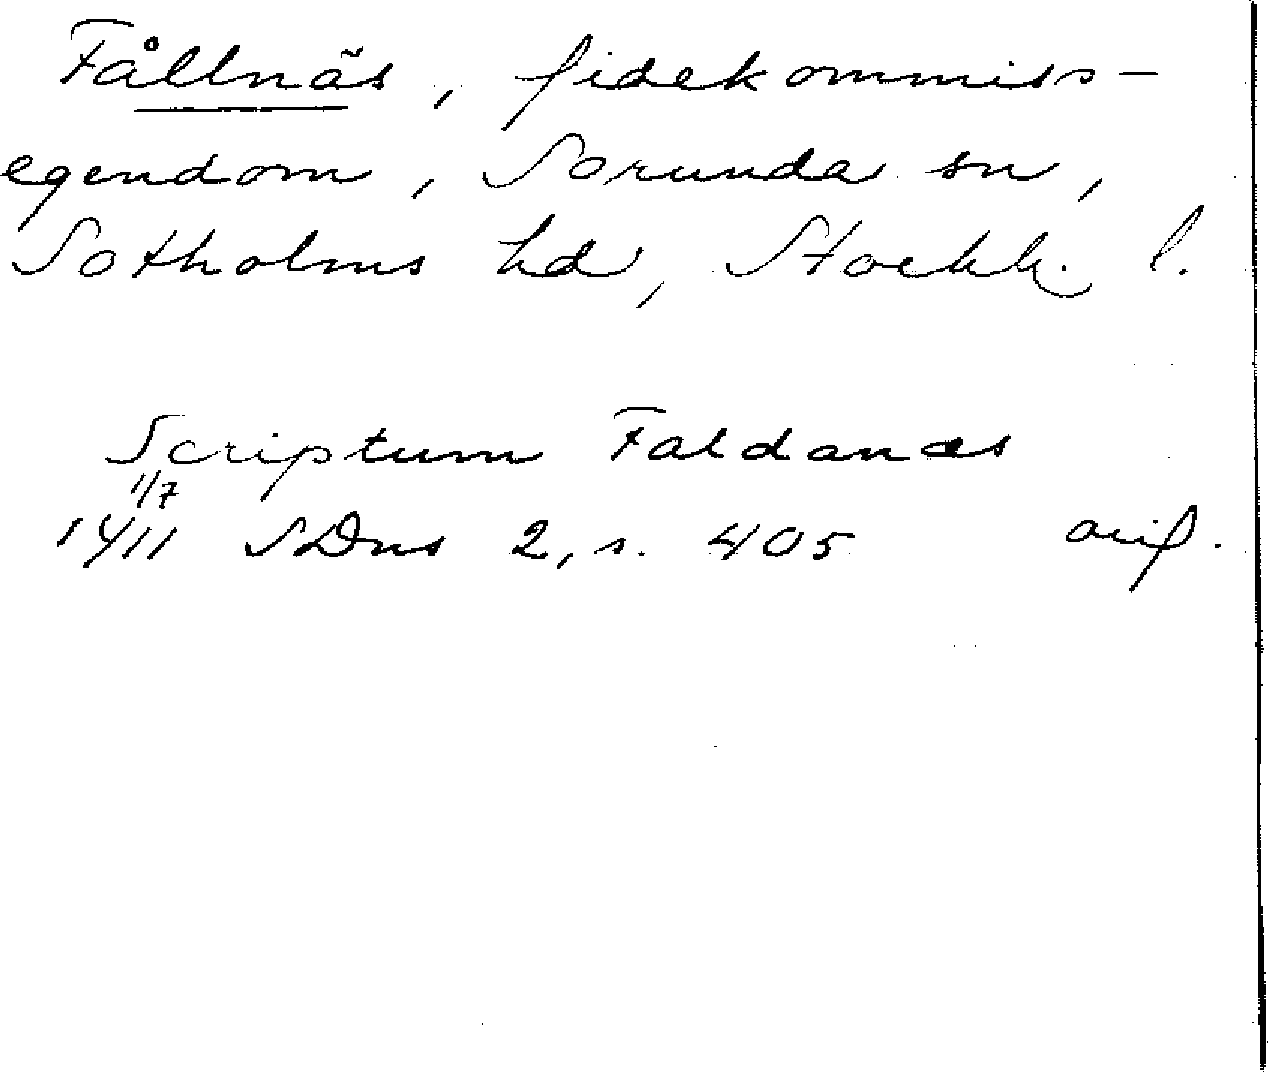 Fållnäs, fidekommiss-
egendom, Sorunda sn,
Sotholms hd, Stockh. l.
Scriptum Faldanæs
1/7
1411 SDns 2, s. 405 orig.